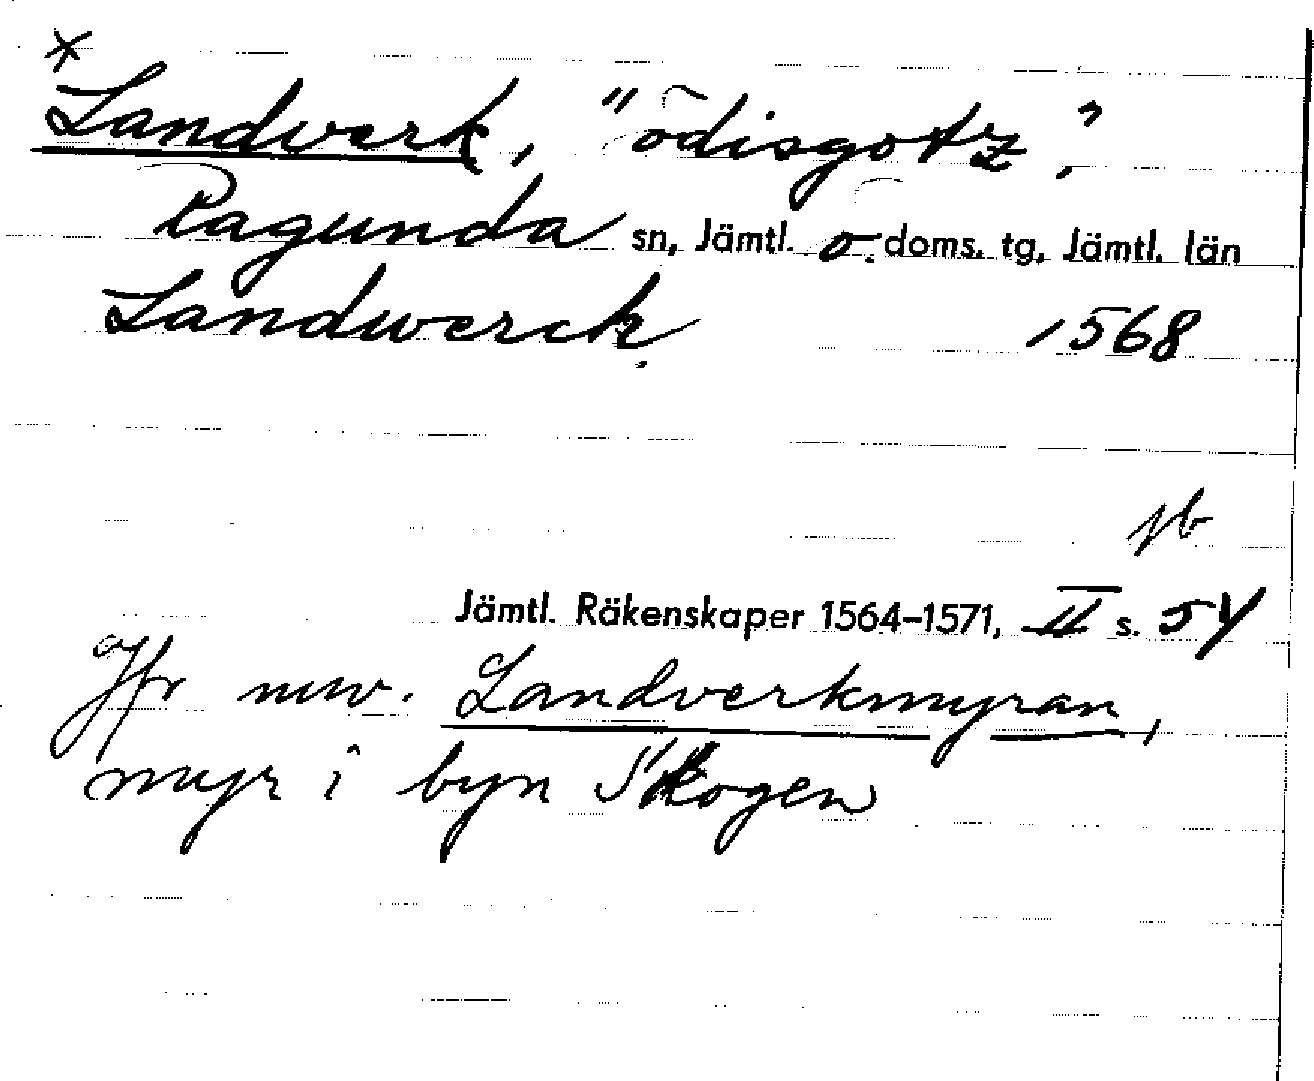 *
Landverk, "ödisgotz",
Ragunda sn, Jämtl. ö. doms. tg, Jämtl. län
Landwerck 1568
jb
Jämtl. Räkenskaper 1564–1571, II s. 54
Jfr nuv. Landverkmyran,
myr i byn Skogen